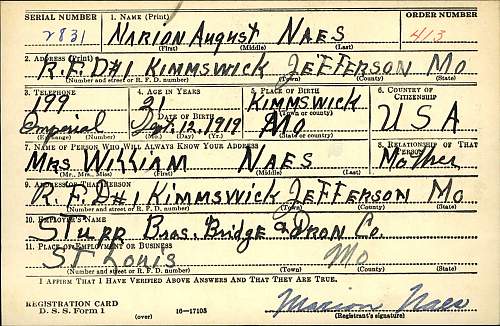 SERIAL NUMBER 1. NAME (Print) ORDER NUMBER
2831 MARION AUGUST NAES 413
(First) (Middle) (Last)
2. ADDRESS (Print)
R.F.D#1 KIMMSWICK JEFFERSON MO
(Number and street or R. F. D. number) (Town) (County) (State)
3. TELEPHONE 4. AGE IN YEARS 5. PLACE OF BIRTH 6. COUNTRY OF CITIZENSHIP
199 21 KIMMSWICK USA
DATE OF BIRTH (Town or county)
Imperial Sept. 12, 1919 MO
(Exchange) (Number) (Mo.) (Day) (Yr.) (State or country)
7. NAME OF PERSON WHO WILL ALWAYS KNOW YOUR ADDRESS 8. RELATIONSHIP OF THAT PERSON
MRS WILLIAM NAES Mother
(Mr., Mrs., Miss) (First) (Middle) (Last)
9. ADDRESS OF THAT PERSON
R.F.D#1 KIMMSWICK JEFFERSON MO
(Number and street or R. F. D. number) (Town) (County) (State)
10. EMPLOYER'S NAME
STUPP Bros. Bridge & IRON Co.
11. PLACE OF EMPLOYMENT OR BUSINESS
ST LOUIS MO
(Number and street or R. F. D. number) (Town) (County) (State)
I AFFIRM THAT I HAVE VERIFIED ABOVE ANSWERS AND THAT THEY ARE TRUE.
REGISTRATION CARD
D. S. S. Form 1 (over) 16—17105
Marion Naes
(Registrant's signature)